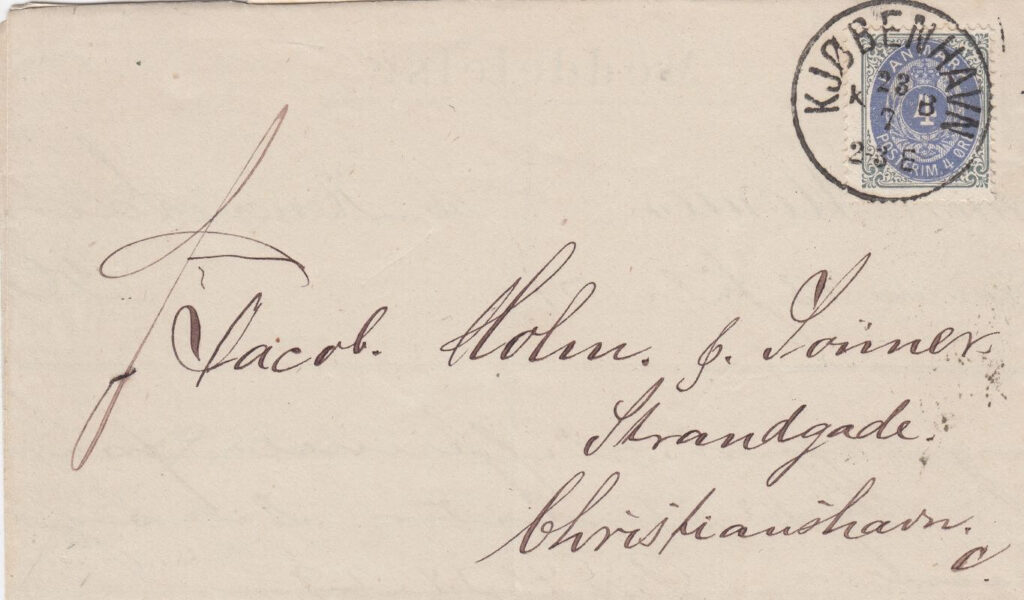 KJØBENHAVN
23
K 7 B
2-3 E
DANMARK
4
POSTFRIM. 4 ØRE
Jacob. Holm. & Sönner
Strandgade.
Christianshavn.
C